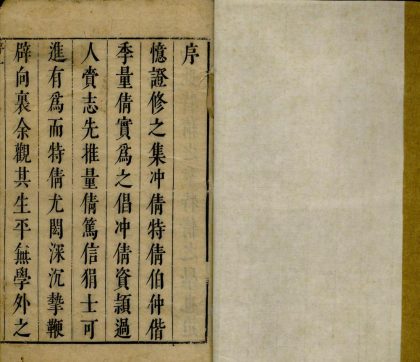 序
憶證修之集冲倩特倩伯仲偕
季量倩實爲之倡冲倩資穎過
人賫志先推量倩篤信狷士可
進有爲而特倩尤閎深沉摯鞭
辟向裏余觀其生平無學外之